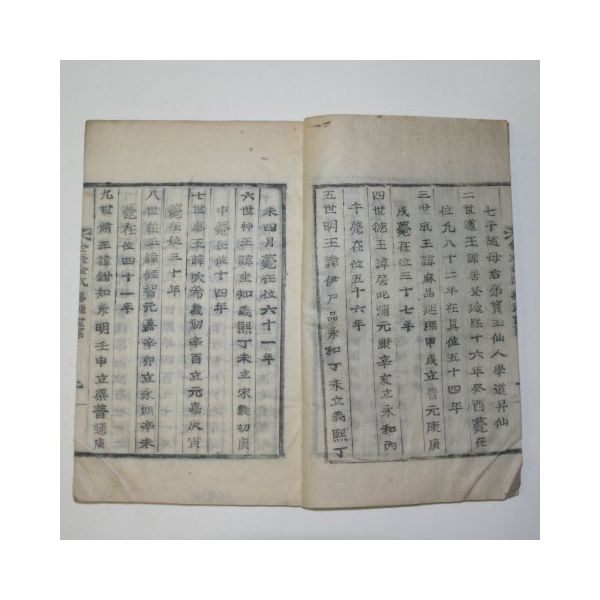 七子隨母后弟寶玉仙人學道昇仙
二世道王諱居登延熙十六年癸酉薨在
位九八十二年在眞位五十四年
三世成王諱麻品延熙甲戌立晉元康庚
戌薨在位三十七年
四世德王諱居叱彌元康辛亥立永和丙
午薨在位五十六年
五世明王諱伊尸品永和丁未立義熙丁
未四月薨在位六十一年
六世神王諱坐知義熙丁未立宋義初庚
申薨在位十四年
七世惠王諱吹希義初辛酉立元嘉庚寅
薨在位三十年
八世莊王諱銍智元嘉辛卯立永明辛未
薨在位四十一年
九世肅王諱鉗知永明壬申立梁普通庚